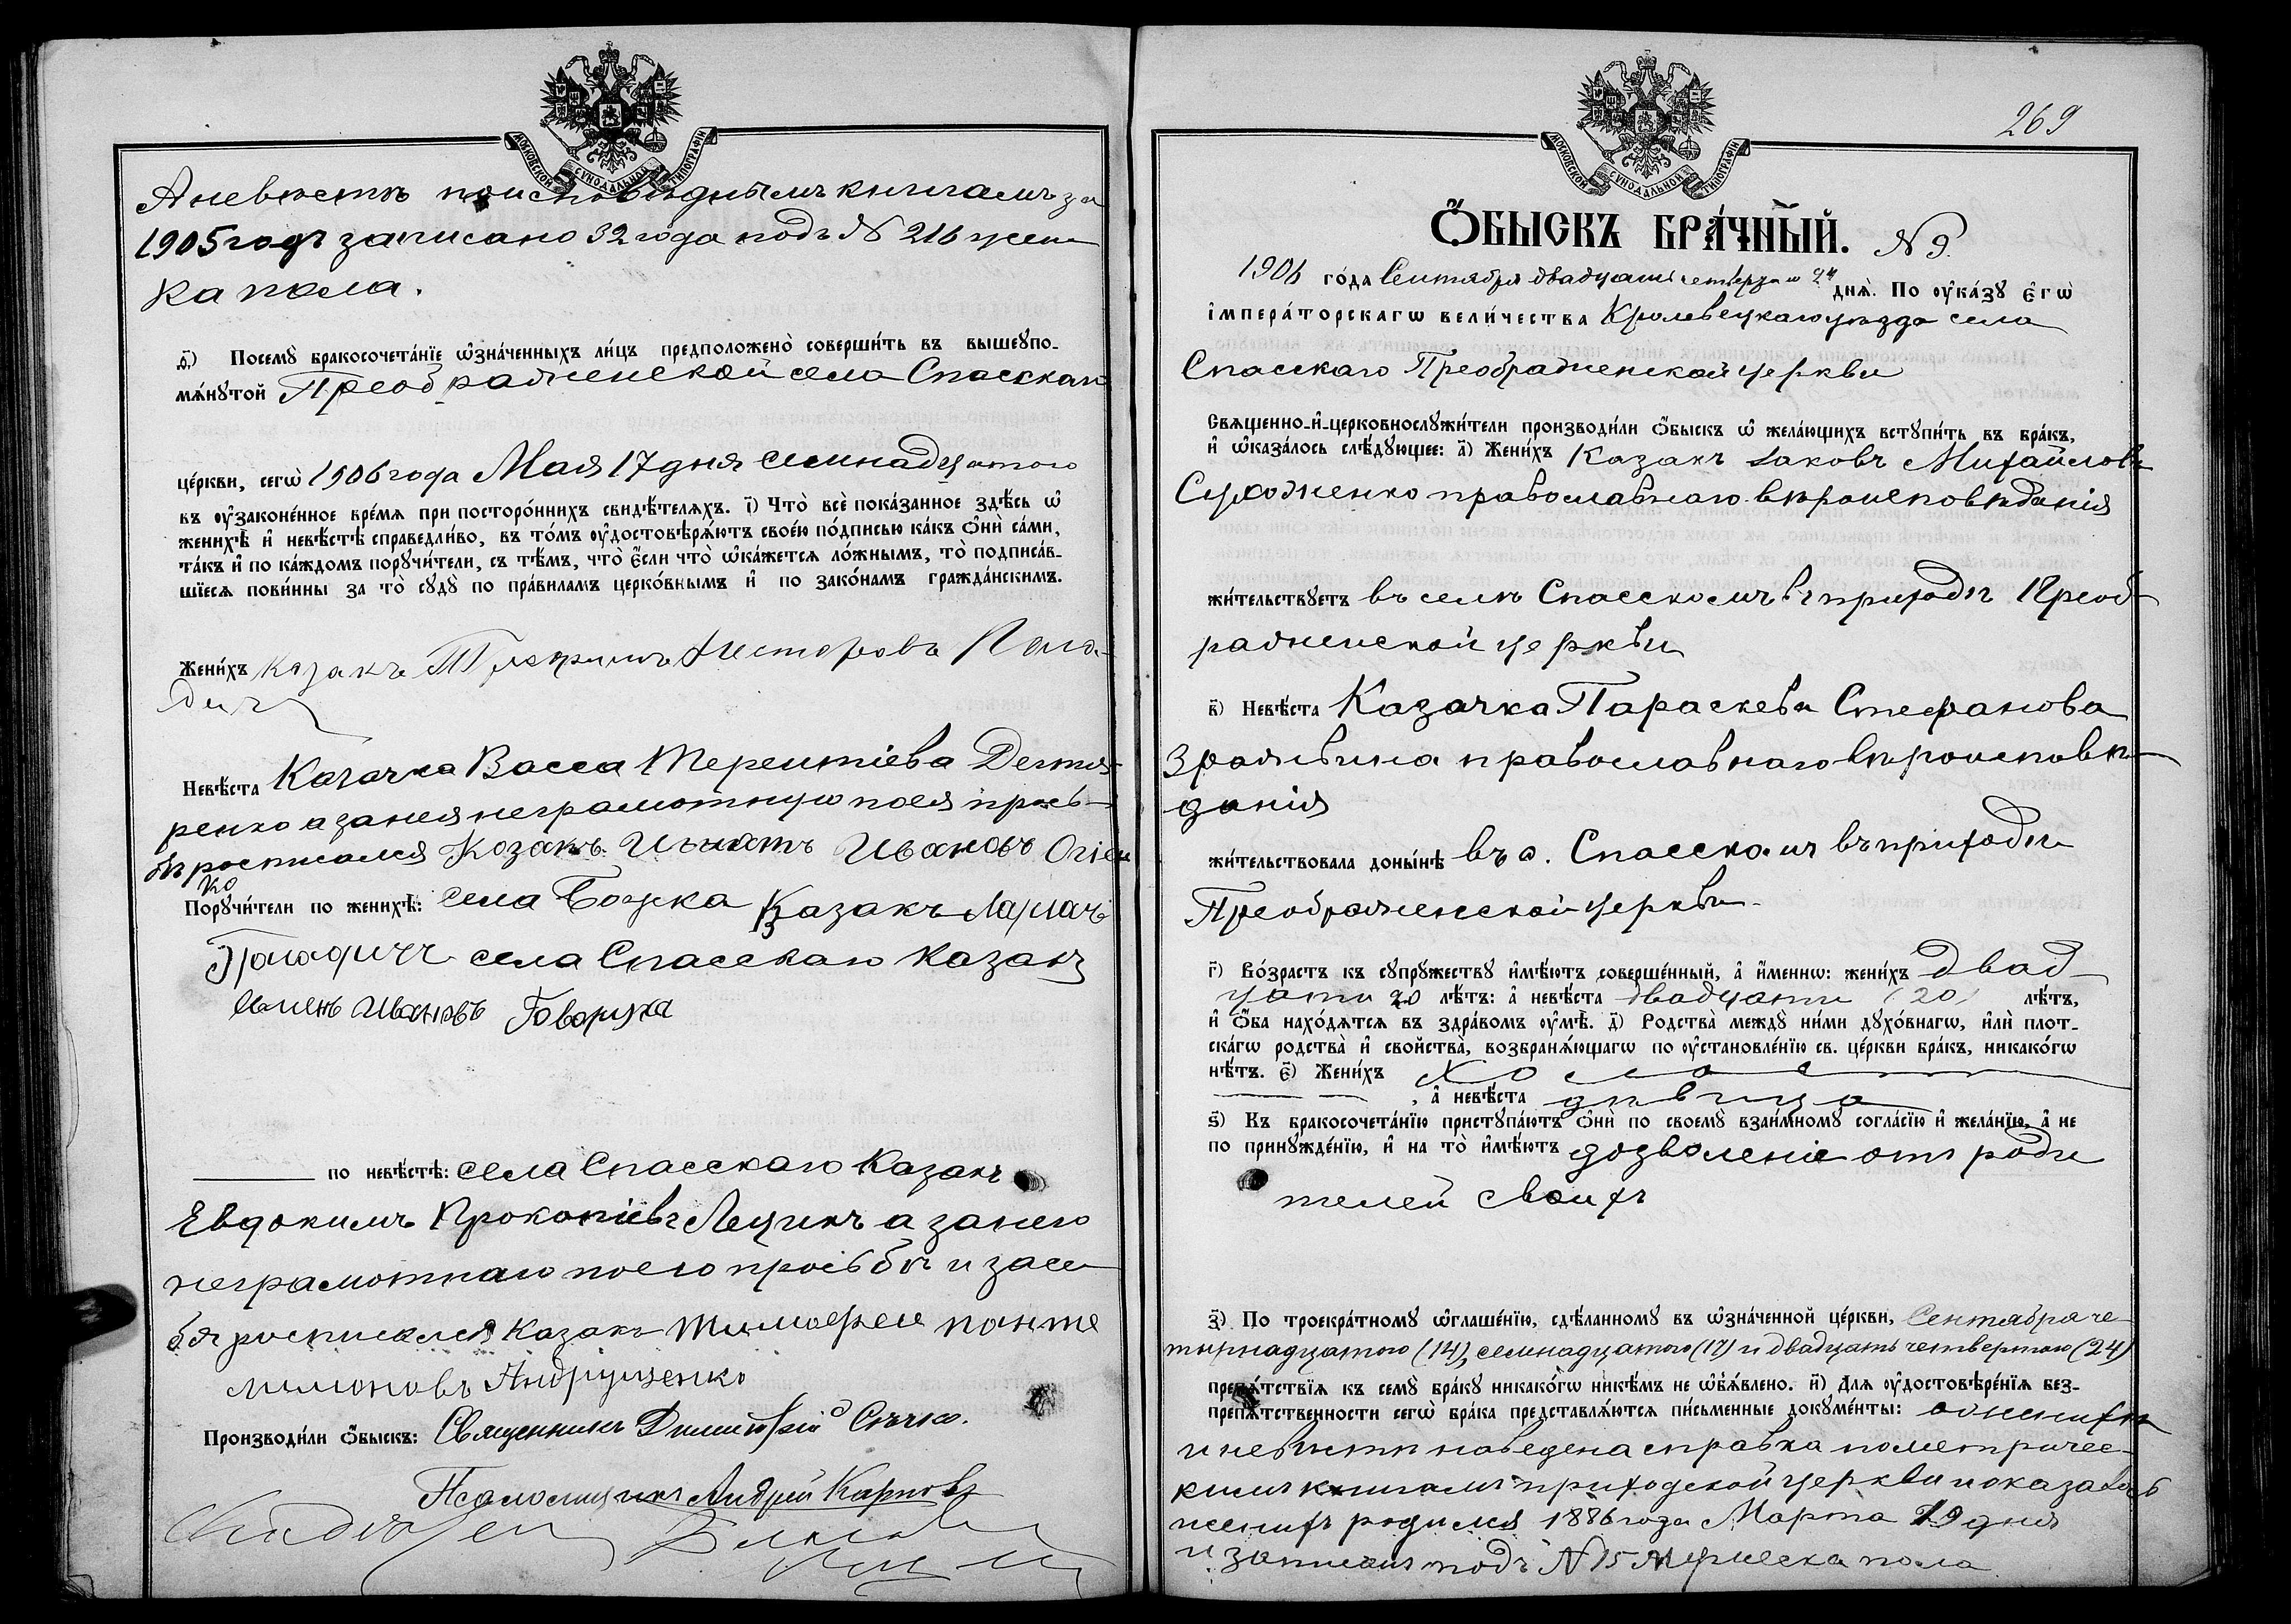 МОСКОВСКОЙ СѴНОДАЛЬНОЙ ТИПОГРАФІИ
А невѣстѣ по исповѣднымъ книгамъ за
1905 годъ записано 32 года подъ № 216 жен
ка пола.
д҃і) Посемꙋ̀ бракосочета́нїе ѡ҆зна́ченныхъ ли́цъ предположено̀ соверши́ть въ вышеꙋпо-
мѧ́нꙋтой Преображенской села Спасскаго
це́ркви, сегѡ̀ 1906 года Мая 17 дня семнадцатаго
въ ᲂу҆законе́нное вре́мѧ при посторо́ннихъ свидѣ́телѧхъ. і҃) Что̀ всѐ пока́занное здѣ́сь ѡ҆
женихѣ̀ и҆ невѣ́стѣ справедли́во, въ то́мъ ᲂу҆достовѣрѧ́ютъ свое́ю по́дписью ка́къ ѻ҆нѝ са́ми,
та́къ и҆ по ка́ждомъ порꙋчи́тели, съ тѣ́мъ, что̀ є҆́сли что̀ ѡ҆ка́жетсѧ ло́жнымъ, то̀ подписа́в-
шїесѧ пови́нны за то̀ сꙋдꙋ̀ по пра́виламъ церко́внымъ и҆ по зако́намъ гражда́нскимъ.
Жени́хъ казакъ Несторовъ
Невѣ́ста Казачка Васса Терентіева Дегтя-
ренко а за нея неграмотную по ея прось-
бѣ росписался Козакъ Игнатъ Иванов Огіен
ко
Порꙋчи́тели по женихѣ̀: села Казакъ
села Спасскаго казакъ
Семенъ Ивановъ Говоруха
по невѣ́стѣ: села Спасскаго Казакъ
Евдокимъ Прокопіевъ Лещикъ а за него
неграмотнаго по его просьбѣ и за се
бя росписался казакъ Тимофей панте
лимоновъ Андрущенко
Производи́ли ѻ҆́быскъ: Священникъ Димитрій Сѣчко.
Псаломщикъ Андрей Карповъ
МОСКОВСКОЙ СѴНОДАЛЬНОЙ ТИПОГРАФІИ
269
Ѻ҆́БЫСКЪ БРА́ЧНЫЙ. № 9.
1906 го́да Сентября двадцать четвертаго 24 днѧ̀. По ᲂу҆ка́зꙋ є҆гѡ̀
і҆мпера́торскагѡ вели́чества Кролевецкаго уѣзда села
Спасскаго Преображенской церкви
Свѧщенно-и҆-церковнослꙋжи́тели производи́ли ѻ҆́быскъ ѡ҆ жела́ющихъ встꙋпи́ть въ бра́къ,
и҆ ѡ҆каза́лось слѣ́дꙋющее: а҃) Жени́хъ Казакъ Іаковъ Михайловъ
Сухоженко православнаго вѣроисповѣданія
жи́тельствꙋетъ въ селѣ Спасскомъ въ приходѣ Преоб-
раженской церкви
в҃) Невѣ́ста Казачка Параскева Стефанова
Зражевина православнаго вѣроисповѣ-
данія
жи́тельствовала доны́нѣ въ с. Спасскомъ въ приходѣ
Преображенской церкви
г҃) Во́зрастъ къ сꙋпрꙋжествꙋ и҆мѣ́ютъ соверше́нный, а҆ и҆́меннѡ: жени́хъ двад
цати 20 лѣ́тъ: а҆ невѣ́ста двадцати (20) лѣ́тъ,
и҆ ѻ҆́ба нахо́дѧтсѧ въ здра́вомъ ᲂу҆мѣ̀. д҃) Родства̀ междꙋ̀ ни́ми дꙋхо́внагѡ, и҆лѝ плот-
ска́гѡ родства̀ и҆ свойства̀, возбранѧ́ющагѡ по ᲂу҆становле́нїю св. це́ркви бра́къ, никако́гѡ
нѣ́тъ. є҃) Жени́хъ холост
, а҆ невѣ́ста дѣвица
ѕ҃) Къ бракосочета́нїю пристꙋпа́ютъ ѻ҆нѝ по своемꙋ̀ взаи́мномꙋ согла́сїю и҆ жела́нїю, а҆ не
по принꙋжде́нїю, и҆ на то̀ и҆мѣ́ютъ дозволеніе отъ роди
телей своихъ
з҃) По троекра́тномꙋ ѡ҆глаше́нїю, сдѣ́ланномꙋ въ ѡ҆зна́ченной це́ркви, Сентября че-
тырнадцатого (14), семнадцатого (17) и двадцать четвертого (24)
препѧ́тствїѧ къ семꙋ̀ бра́кꙋ никако́гѡ никѣ́мъ не ѡ҆б̾ѧ́влено. и҃) Длѧ ᲂу҆достовѣре́нїѧ без-
препѧ́тственности сегѡ̀ бра́ка представлѧ́ютсѧ пи́сьменные докꙋме́нты: о женихѣ
и невѣстѣ наведена справка по метричес-
кимъ книгамъ приходской церкви и оказалось
женихъ родился 1886 года Марта 19 дня
и записанъ подъ № 15 мужеска пола